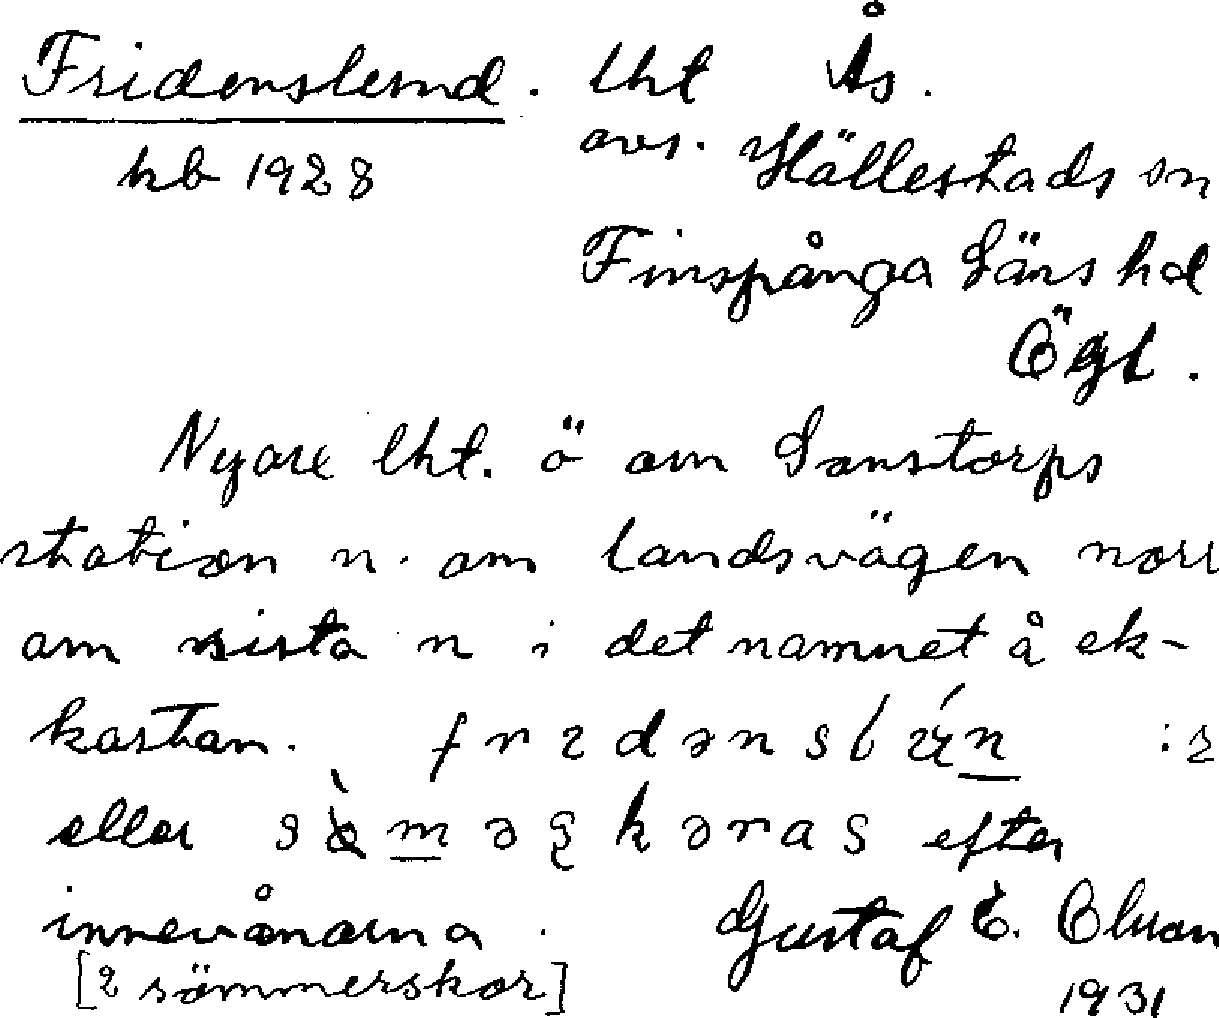 Fridenslund. lht Ås.
hb 1928 avs. Hällestads sn
Finspånga läns hd
Ögl.
Nyare lht. ö om Sonstorps
station n. om landsvägen norr
om sista n i det namnet å ek-
kartan.
eller efter
innevånarna. Gustaf E. Olsson
[2 sömmerskor] 1931